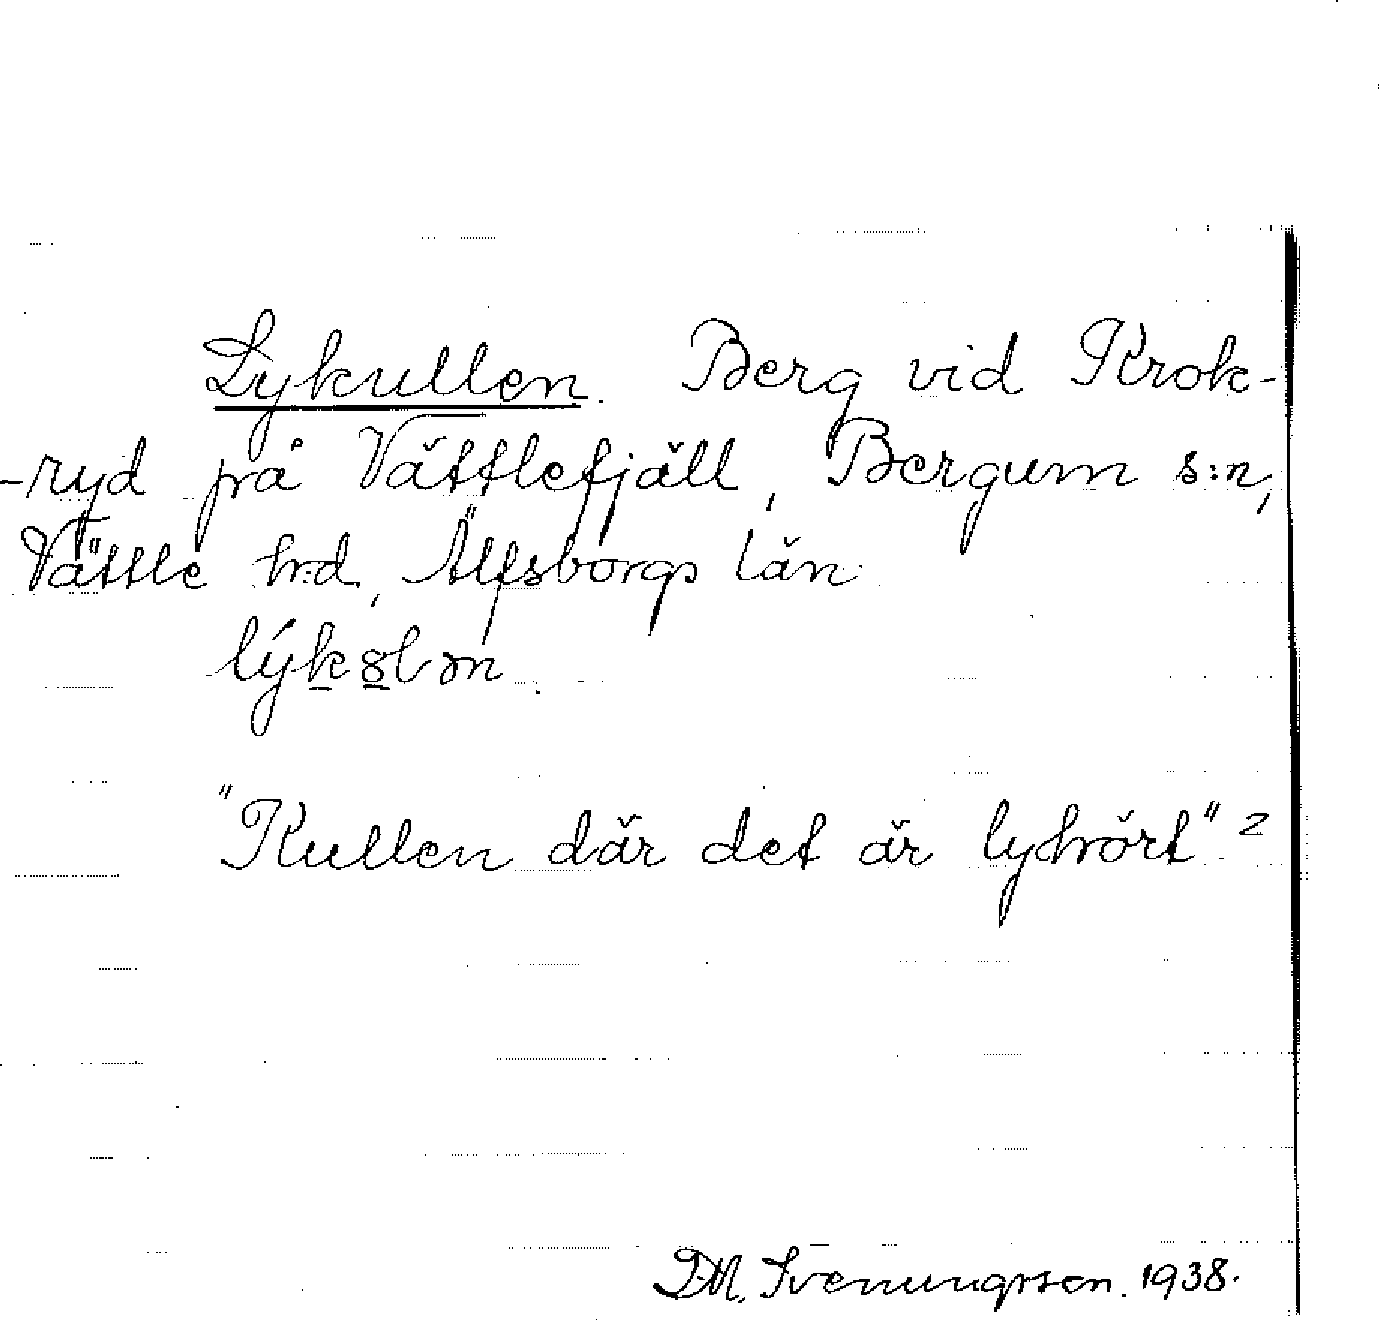 Lykullen. Berg vid Krok-
-ryd på Vättlefjäll, Bergum s:n,
Vättle h:d, Älfsborgs län
"Kullen där det är lyhört"
Svenungsson. 1938.